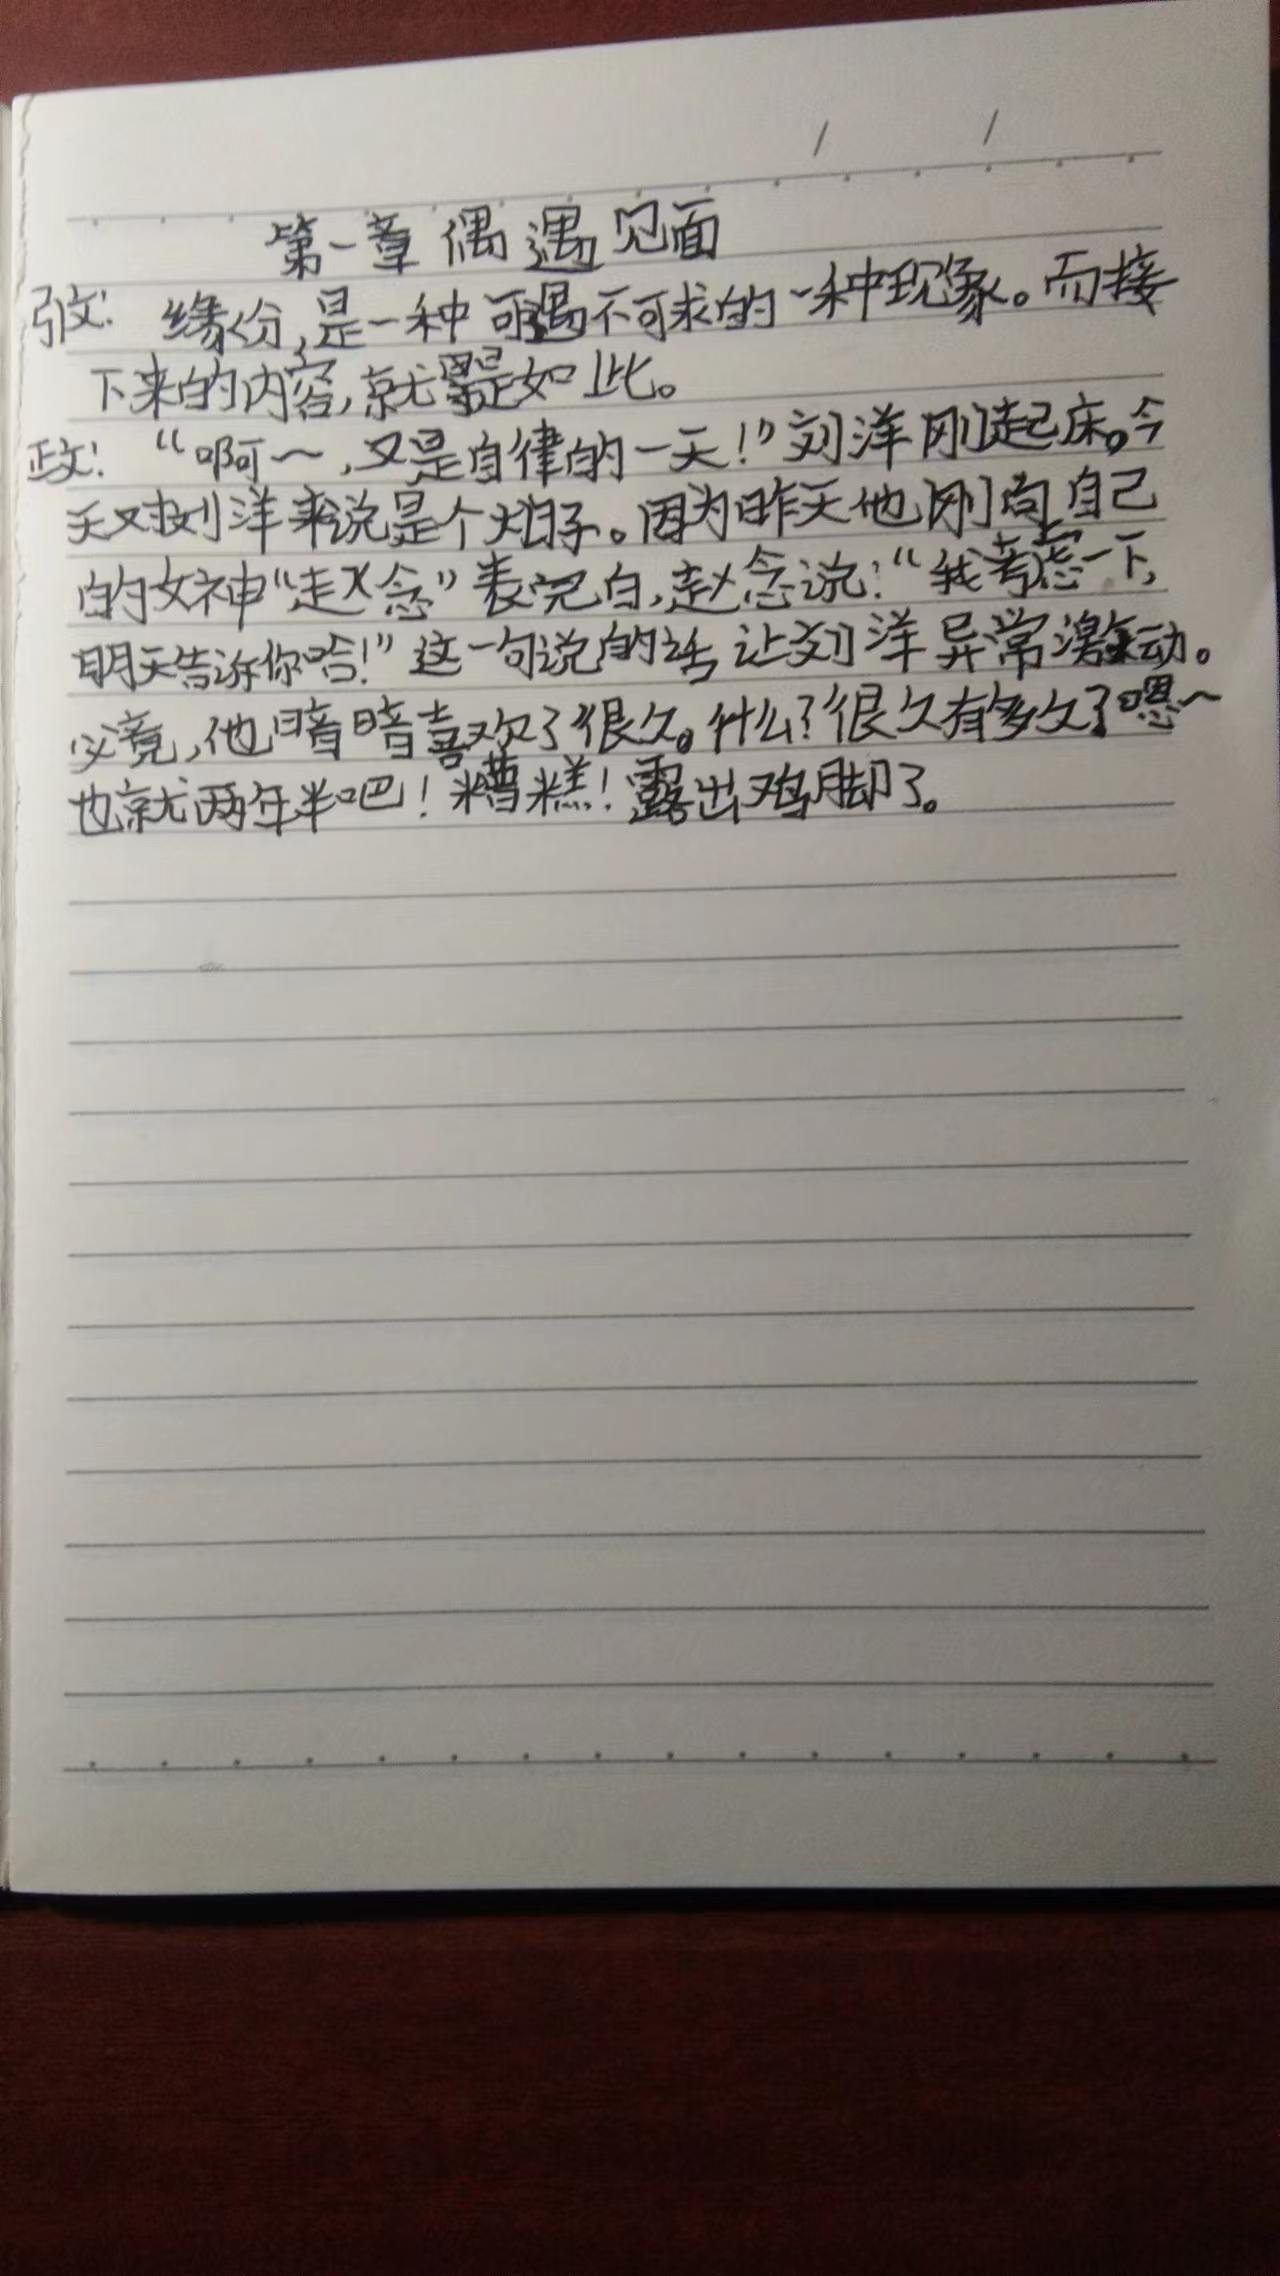 第一章 偶遇见面
引文: 缘份,是一种可遇不可求的一种现象。而接
下来的内容,就是如此。
正文: “啊～,又是自律的一天!”刘洋刚起床。今
天对刘洋来说是个好日子。因为昨天他刚向自己
的女神“赵念”表完白,赵念说:“我考虑一下,
明天告诉你哈!”这一句说的话让刘洋异常激动。
必竟,他暗暗喜欢了很久。什么?很久有多久?嗯～
也就两年半吧!糟糕!露出鸡脚了。